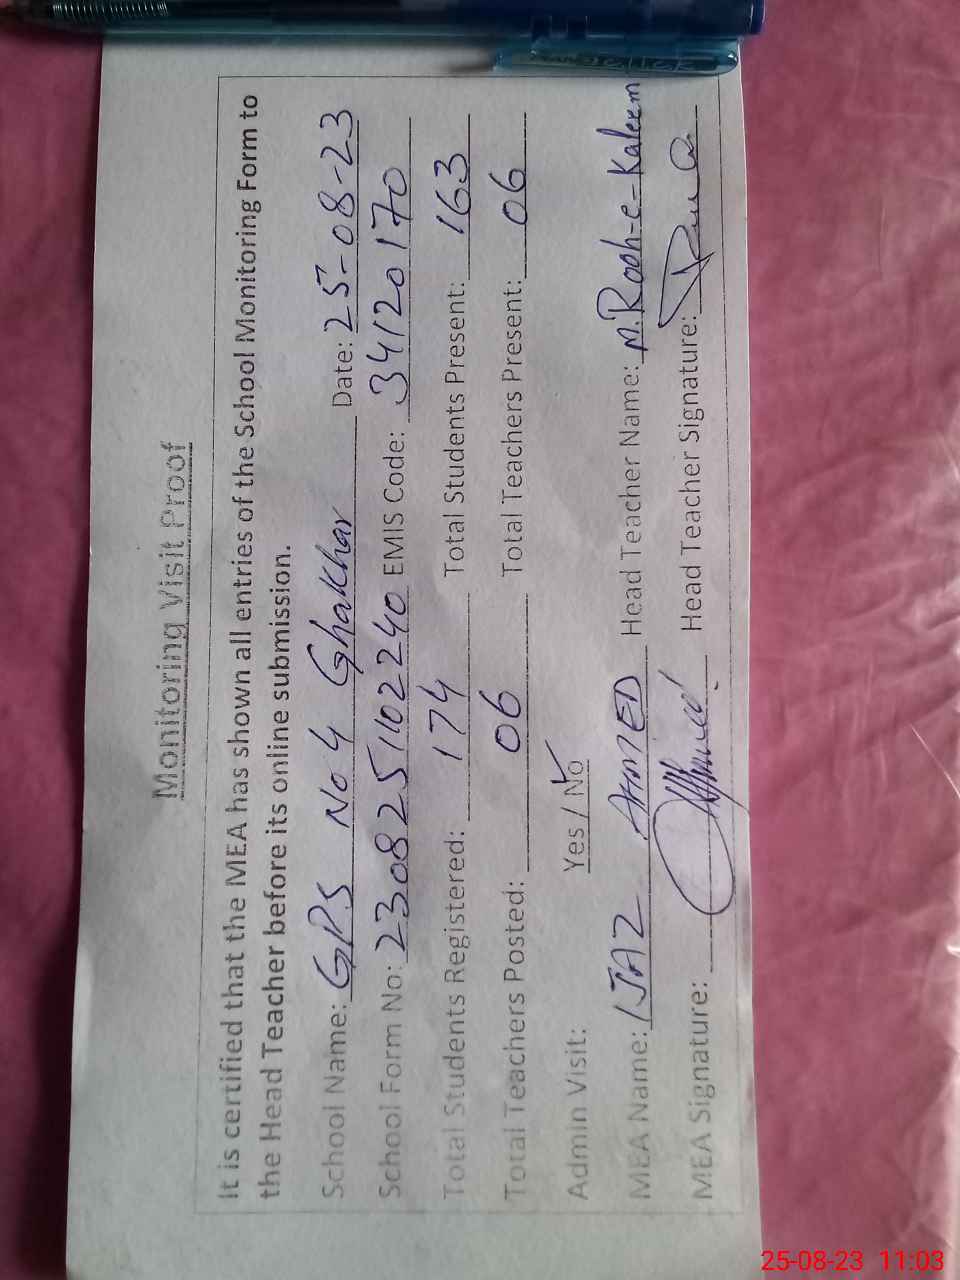 Monitoring Visit Proof
It is certified that the MEA has shown all entries of the School Monitoring Form to
the Head Teacher before its online submission.
School Name: GPS No 4 Ghakhar Date: 25-08-23
School Form No: 230825102240 EMIS Code: 34120170
Total Students Registered: 174 Total Students Present: 163
Total Teachers Posted: 06 Total Teachers Present: 06
Admin Visit: Yes / No
MEA Name: IJAZ AHMED Head Teacher Name: M. Rooh-e-Kaleem
MEA Signature: Head Teacher Signature:
25-08-23 11:03